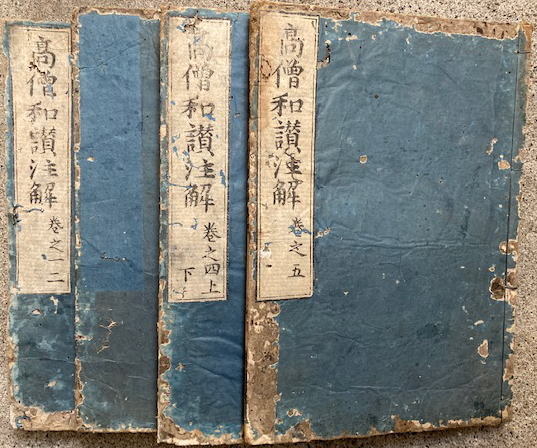 高僧和讚注解 卷之一二
高僧和讚注解 卷之四上下
高僧和讚注解 卷之五